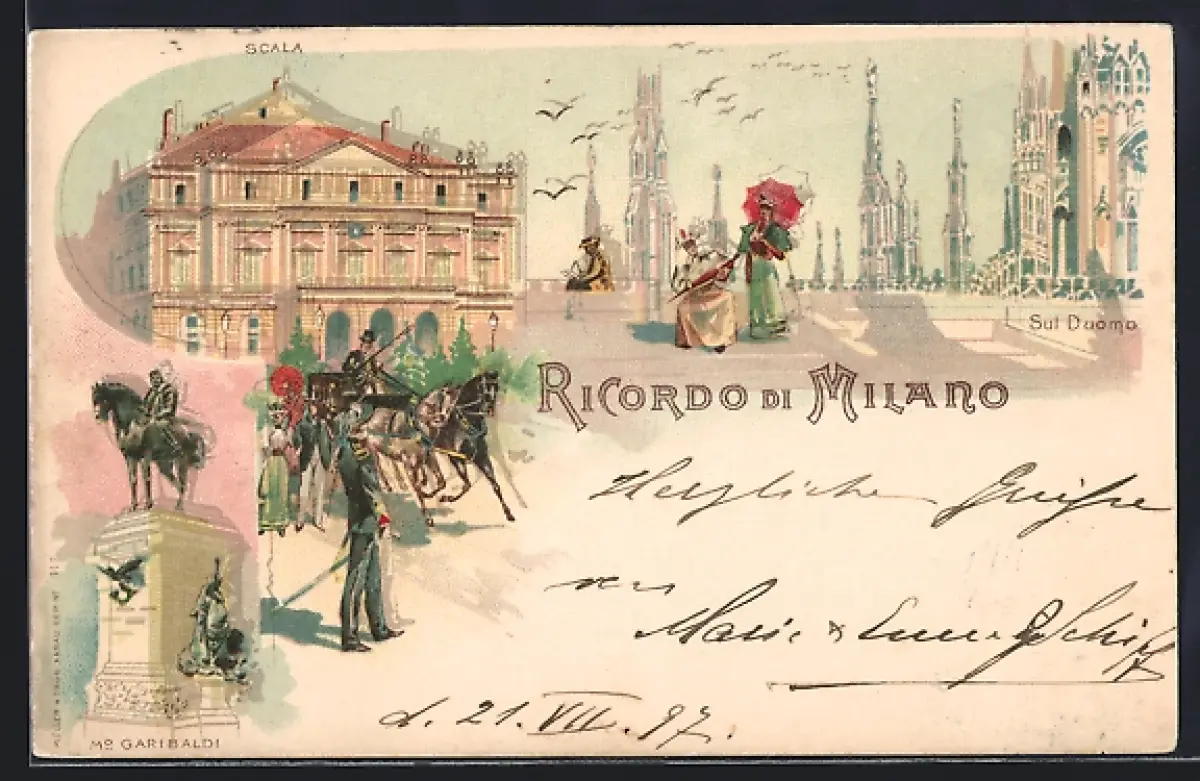 SCALA
Sul Duomo
RICORDO DI MILANO
Herzliche Grüsse
von
Marie &
d. 21. VII. 97.
Mo GARIBALDI
MÜLLER & TRÜB, AARAU